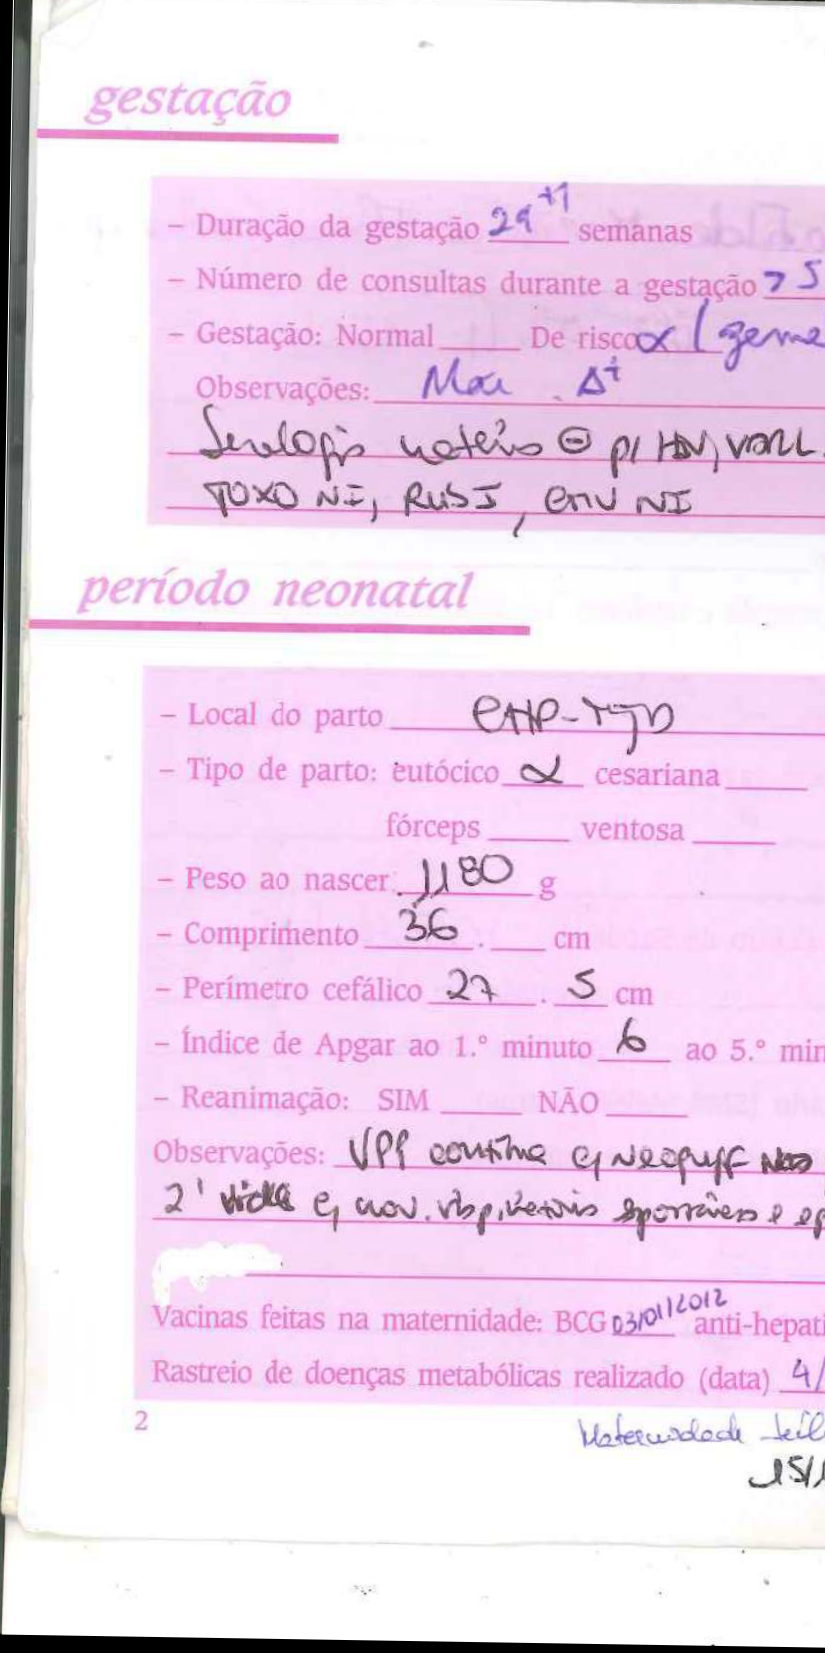 gestação
– Duração da gestação 29+1 semanas
– Número de consultas durante a gestação > 5
– Gestação: Normal De risco x (geme
Observações: A+
⊖ p/ HIV, VDRL.
TOXO NI, RUB I, CMV NI
período neonatal
– Local do parto
– Tipo de parto: eutócico x cesariana
fórceps ventosa
– Peso ao nascer 1180 g
– Comprimento 36 . cm
– Perímetro cefálico 27 . 5 cm
– Índice de Apgar ao 1.° minuto 6 ao 5.° min
– Reanimação: SIM NÃO
Observações: VPP contínua c/ Neopuff
2' vida c/ mov. esporádicos e
Vacinas feitas na maternidade: BCG 03/01/2012 anti-hepati
Rastreio de doenças metabólicas realizado (data) 4/
2
Maternidade
15/1